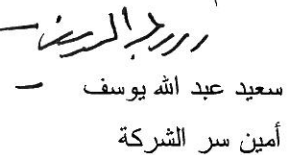 سعيد عبد الله يوسف –
أمين سر الشركة